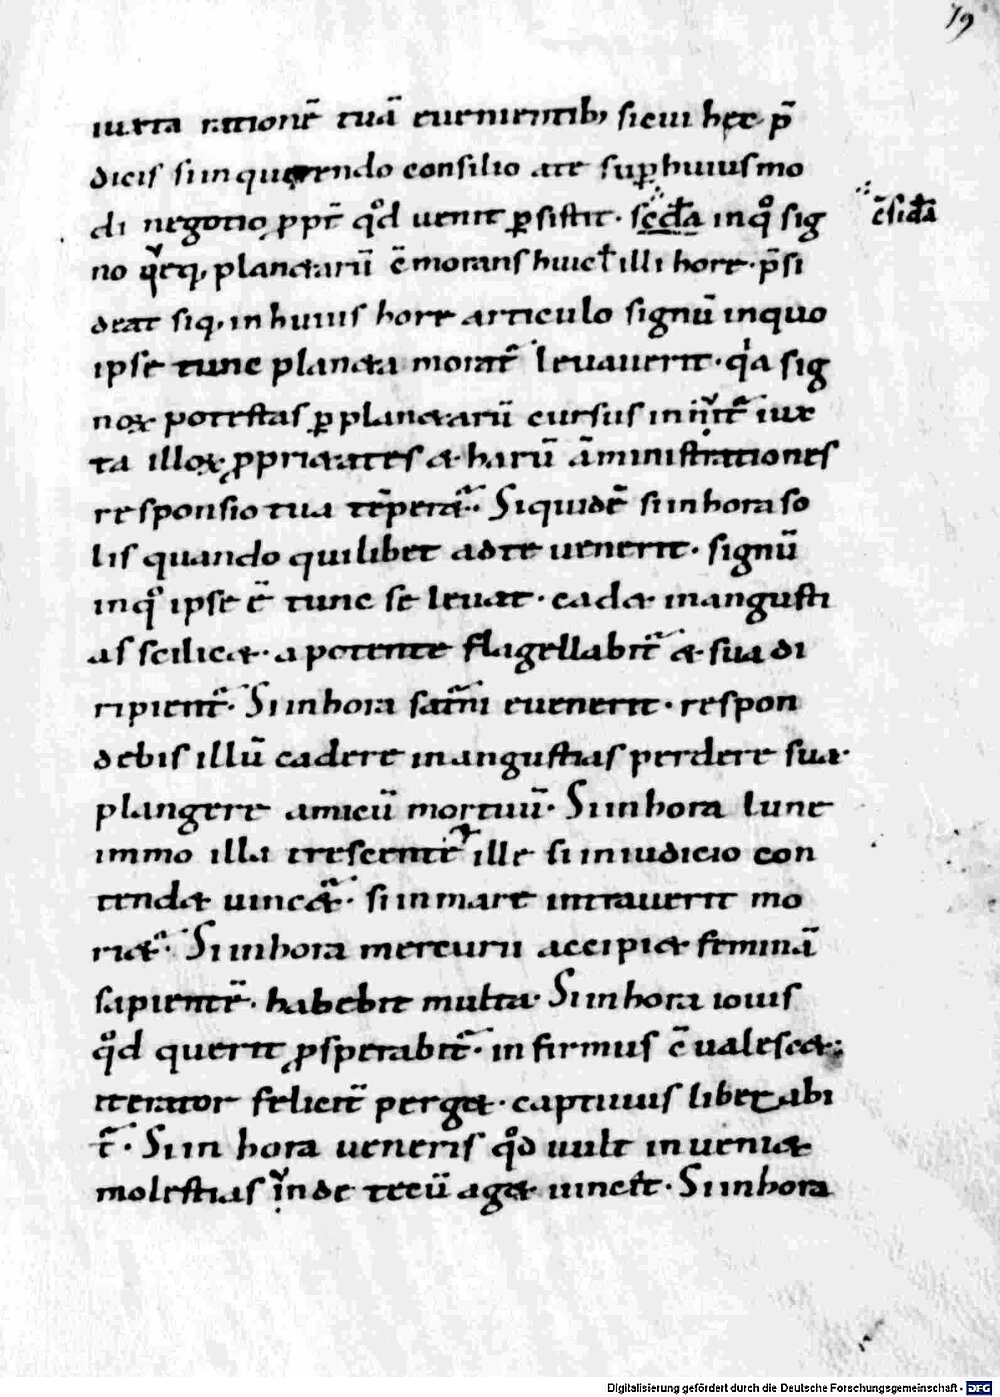 19
iuxta rationē tuā euenientib; sicui hęc p̄
dicis si inquerendo consilio a te sup huiusmo
di negotio ꝓpt̄ qͦd uenit ꝑsistit. sc̄da inqͦ sig
c̄sida
no planetarū c̄morans huic ł illi hore. p̄si
deat siq; in huius hore articulo signū inquo
ipse tunc planeta morat̄ leuauerit. qͥa sig
noꝝ potestas ꝑ planetarū cursus iux
ta illoꝝ ꝓprietates & harū āministrationes
responsio tua Siquidē si in hora so
lis quando quilibet ad te uenerit. signū
inqͦ ipse ē tunc se leuat. cadet inangusti
as scilicet. a potente flagellabit̄ & sua di
ripient̄. Si in hora saturni euenerit. respon
debis illū cadere in angustias perdere sua.
plangere amicū mortuū. Si in hora lune
immo illa crescente ille si in iudicio con
tendat uincet̄. si in mare intrauerit mo
riet̄. Si in hora mercurii accipiet feminā
sapientē. habebit multa. Si in hora iouis
qͦd querit ꝓsperabit̄. infirmus c̄ualescet.
iterator felicit̄ perget. captiuus liberabi
t̄. Si in hora ueneris qͦd uult inueniet
molestias inde tecū aget uincet̄. Si in hora
Digitalisierung gefördert durch die Deutsche Forschungsgemeinschaft - DFG